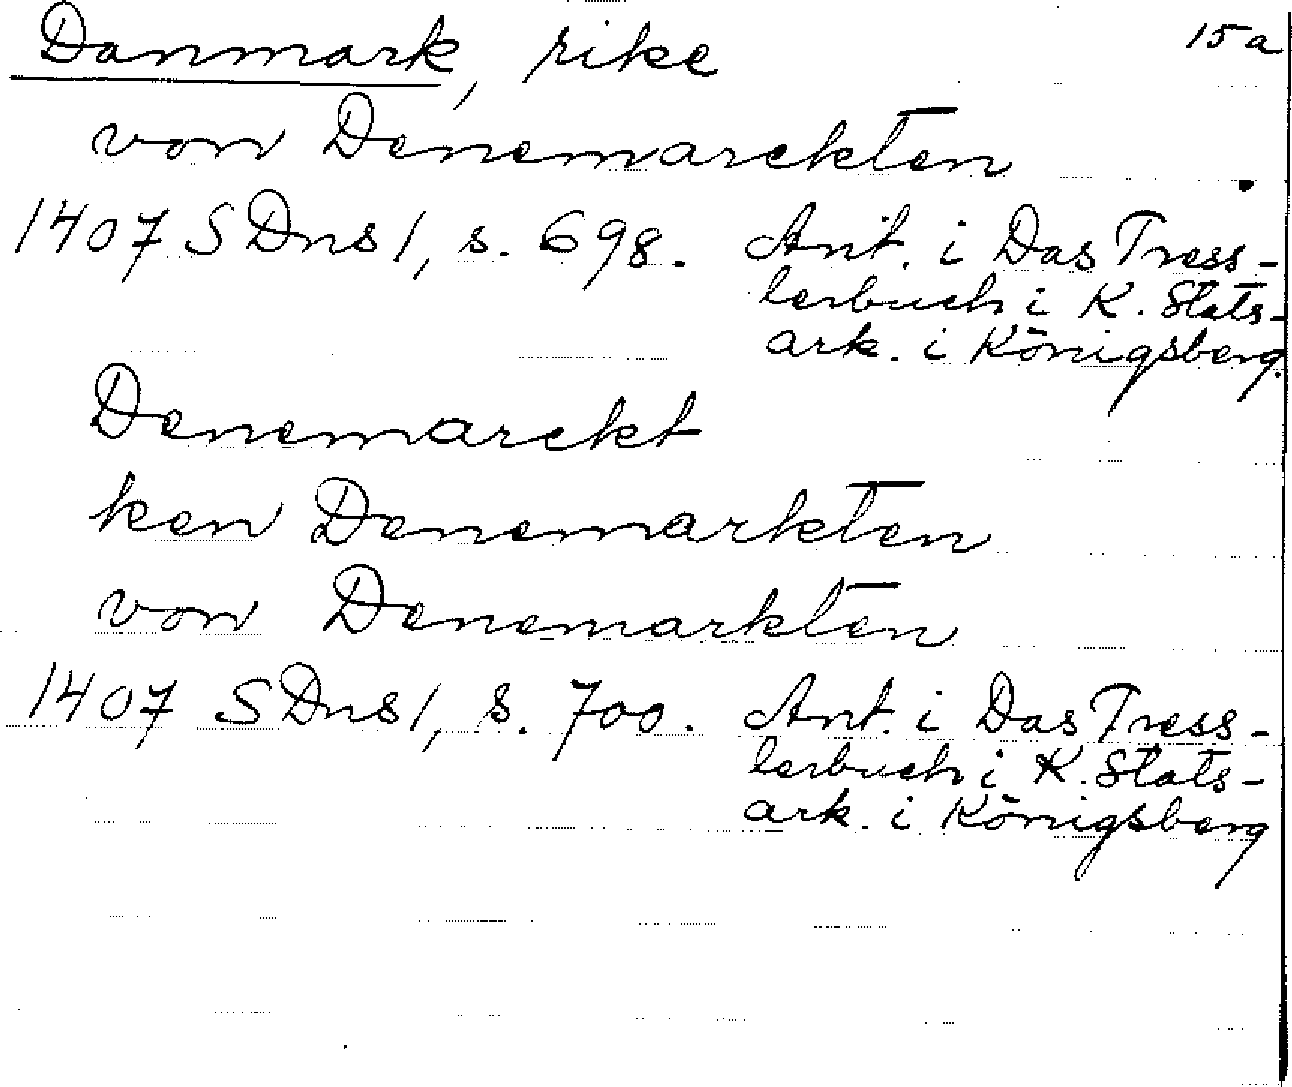 Danmark, rike 15a
von Denemarckten
1407 SDns 1, s. 698. Ant. i Das Tress-
lerbuch i K. Stats-
ark. i Königsberg.
Denemarckt
ken Denemarkten
von Denemarkten
1407 SDns 1, s. 700. Ant. i Das Tress-
lerbuch i K. Stats-
ark. i Königsberg